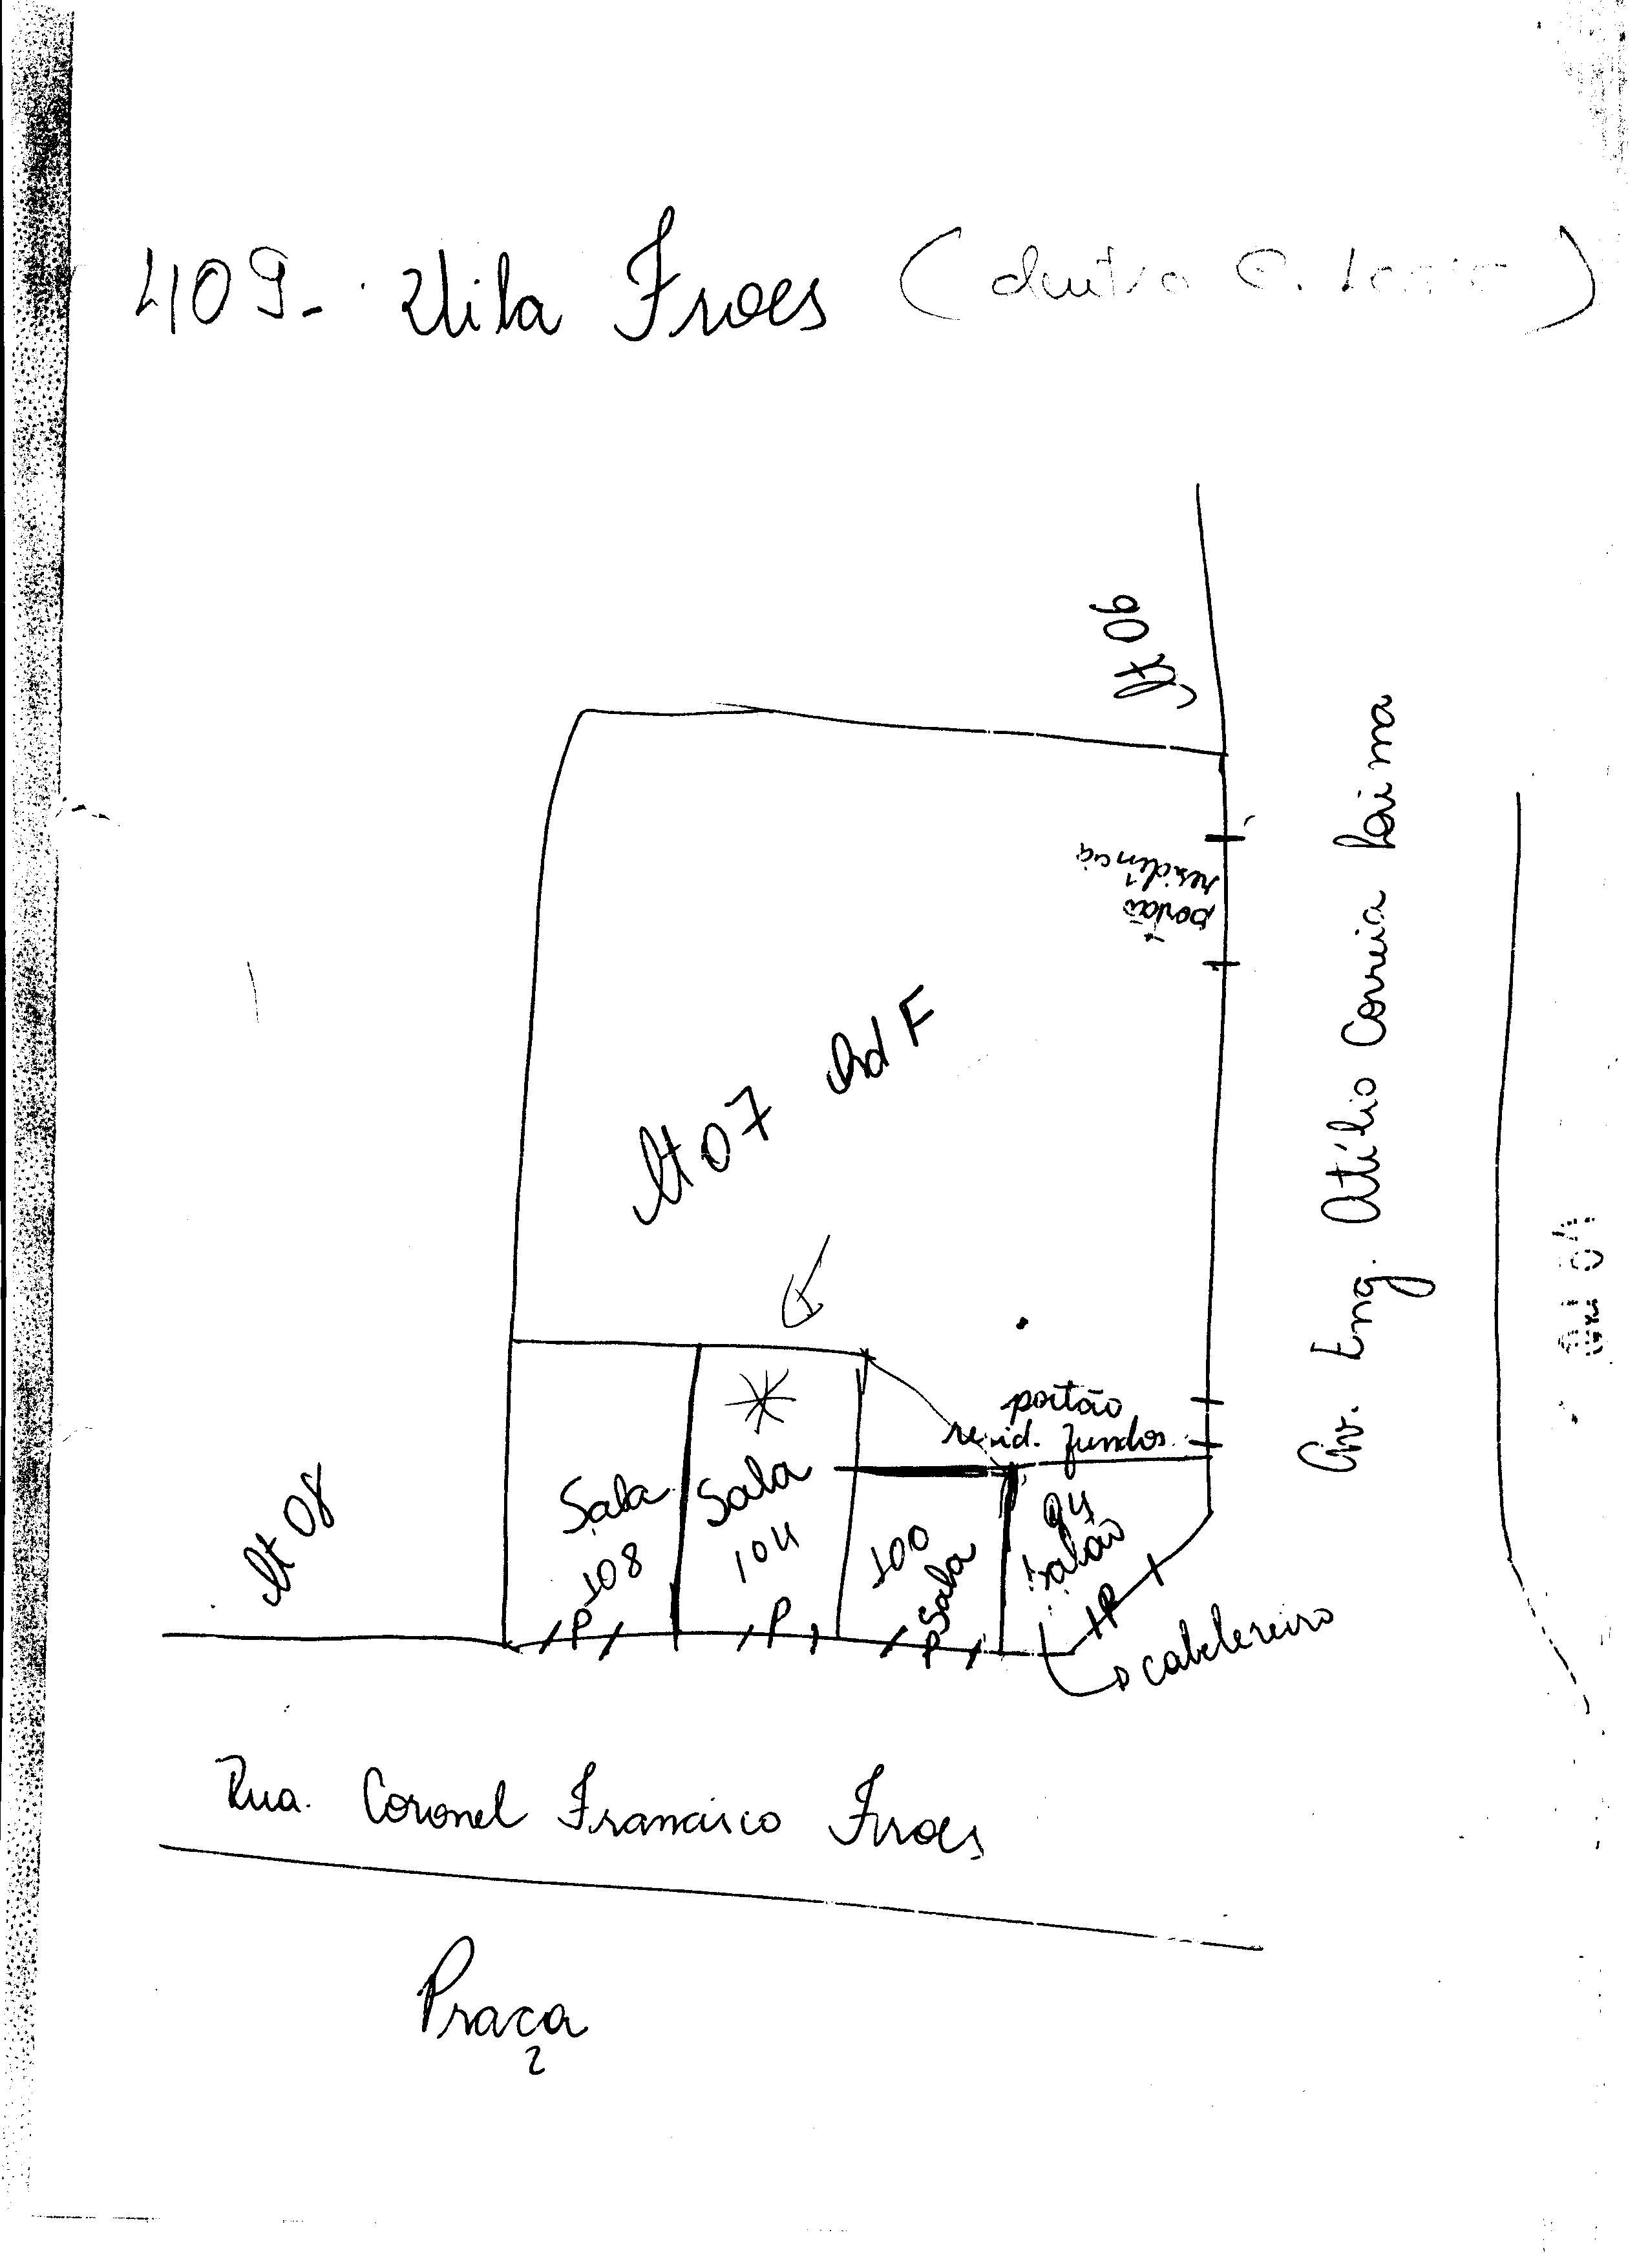 409- Vila Froes (
lt 06
portão
residência
Av. Eng. Atílio Correia Lima
lt 07 Qd F
portão
resid. fundos
lt 08
Sala
108
P
Sala
104
P
100
Sala
P
94
Salão
P
cabelereiro
Rua. Coronel Francisco Froes
Praça